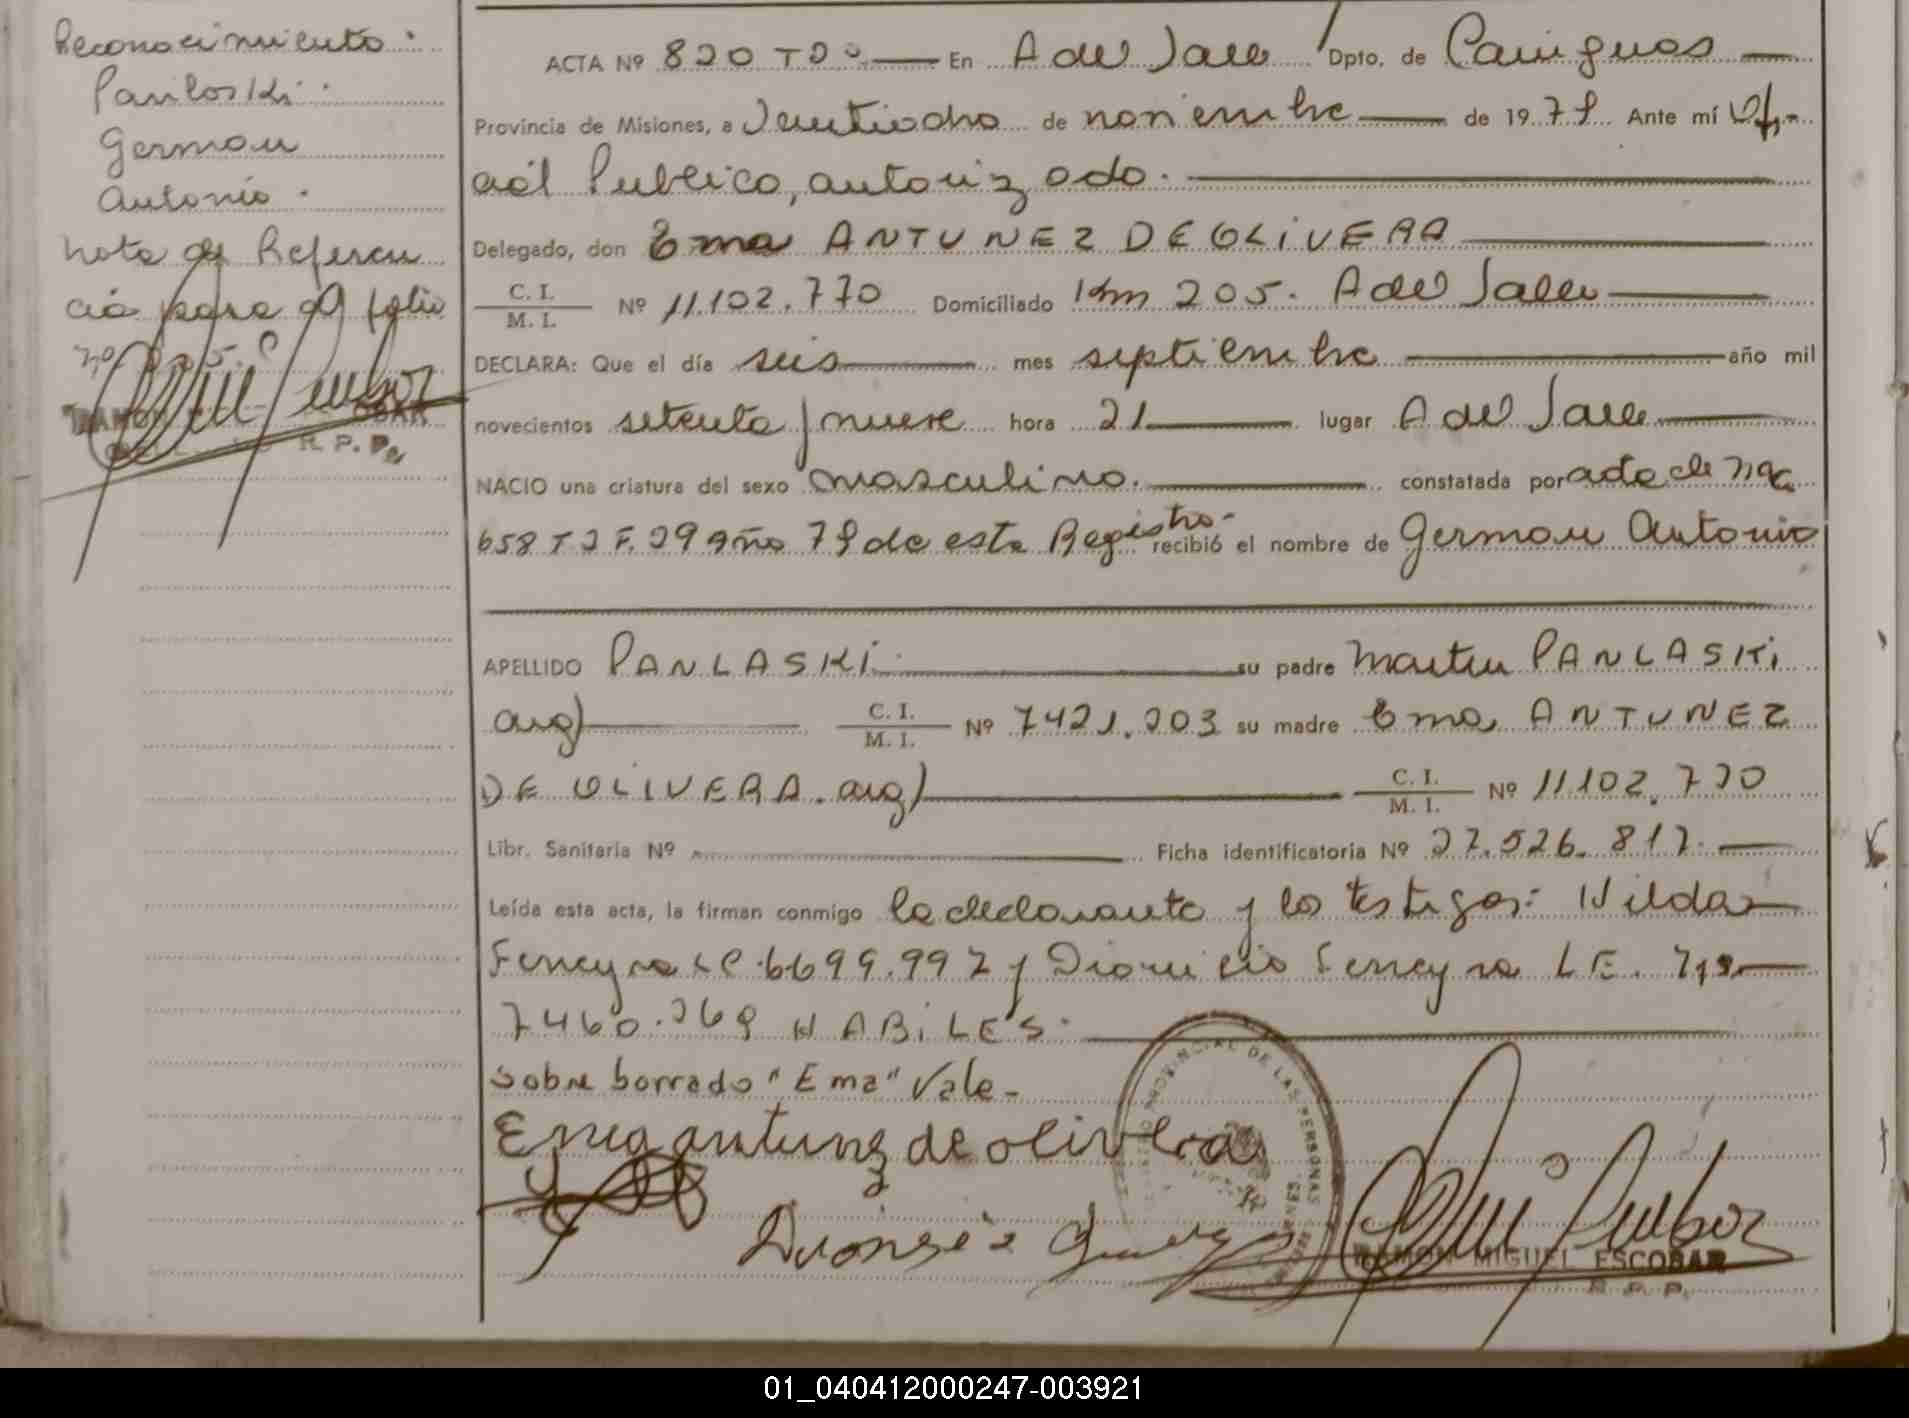 Reconocimiento.
Panloski.
German
Antonio.
Nota de Referen
cia para el folio
RAMON ESCOBAR
R. P. P.
ACTA Nº 820 T2º — En A del Valle Dpto. de Cainguas —
Provincia de Misiones, a Veintiocho de noviembre — de 1979 Ante mí Ofi-
cial Publico, autorizado.
Delegado, don Ema ANTUNEZ DE OLIVERA
C. I. / M. I. Nº 11.102.770 Domiciliado Km 205. A del Valle
DECLARA: Que el día seis mes septiembre año mil
novecientos setenta y nueve hora 21 lugar A del Valle
NACIO una criatura del sexo masculino. constatada por acta de nac
658 T 2 F. 29 año 79 de este Registro- recibió el nombre de German Antonio
APELLIDO PANLASKI su padre Martin PANLASKI
arg) C. I. / M. I. Nº 7421.203 su madre Ema ANTUNEZ
DE OLIVERA. arg) C. I. / M. I. Nº 11.102.770
Libr. Sanitaria Nº Ficha identificatoria Nº 27.526.817.
Leída esta acta, la firman conmigo la declarante y los testigos: Hilda
Ferreyra LC. 6699.997 y Dionicio Ferreyra LE.
7460.269 HABILES.
Sobre borrado "Ema" Vale-
Ema antunez de olivera
PROVINCIAL DE LAS PERSONAS
RAMON MIGUEL ESCOBAR
R. P. P.
01_040412000247-003921